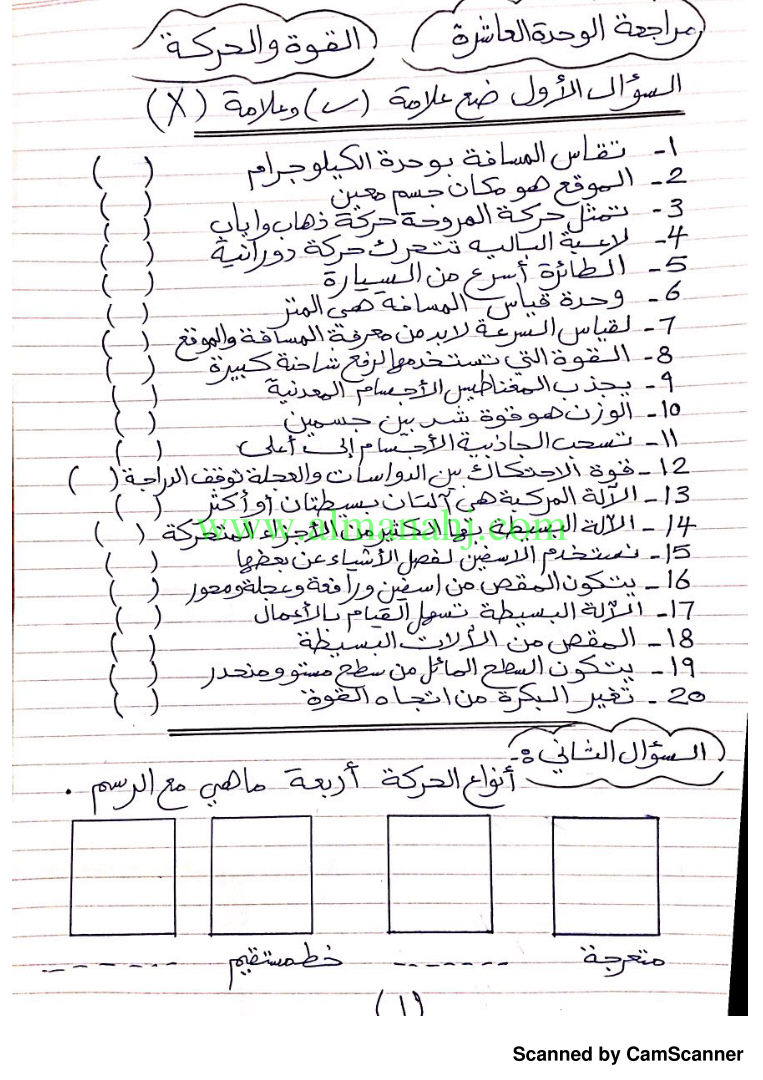 مراجعة الوحدة العاشرة
القوة والحركة
السؤال الأول ضع علامة (✓) وعلامة (X)
1- تقاس المسافة بوحدة الكيلوجرام ( )
2- الموقع هو مكان جسم معين ( )
3- تمثل حركة المروحة حركة ذهاب واياب ( )
4- لاعبة الباليه تتحرك حركة دورانية ( )
5- الطائرة أسرع من السيارة ( )
6- وحدة قياس المسافة هي المتر ( )
7- لقياس السرعة لابد من معرفة المسافة والموقع ( )
8- القوة التي تستخدمها لرفع شاحنة كبيرة ( )
9- يجذب المغناطيس الأجسام المعدنية ( )
10- الوزن هو قوة شد بين جسمين ( )
11- تسحب الجاذبية الأجسام إلى أعلى ( )
12- قوة الاحتكاك بين الدواسات والعجلة توقف الدراجة ( )
13- الآلة المركبة هي آلتان بسيطتان أو أكثر ( )
14- الآلة البسيطة بها الكثير من الأجزاء المتحركة ( )
www.almanahj.com
15- نستخدم الاسفين لفصل الأشياء عن بعضها ( )
16- يتكون المقص من اسفين ورافعة وعجلة ومحور ( )
17- الآلة البسيطة تسهل القيام بالأعمال ( )
18- المقص من الألات البسيطة ( )
19- يتكون السطح المائل من سطح مستو ومنحدر ( )
20- تغير البكرة من اتجاه القوة ( )
السؤال الثاني :-
أنواع الحركة أربعة ماهي مع الرسم .
متعرجة ------- خط مستقيم -------
(1)
Scanned by CamScanner